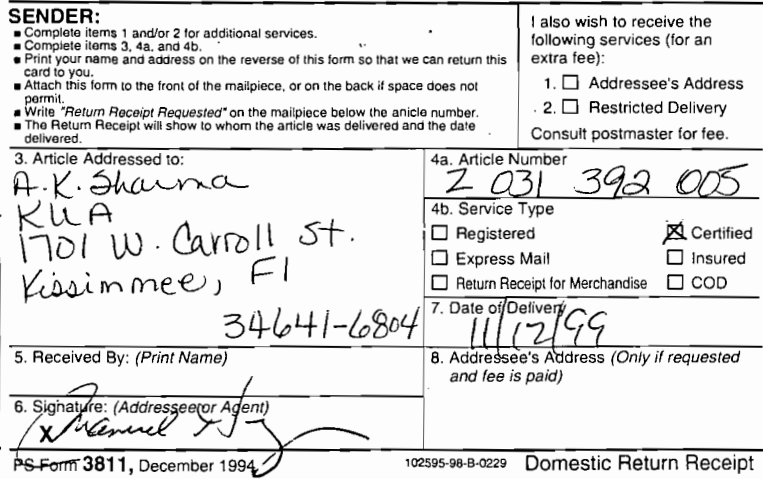 SENDER:
■ Complete items 1 and/or 2 for additional services.
■ Complete items 3, 4a, and 4b.
■ Print your name and address on the reverse of this form so that we can return this
card to you.
■ Attach this form to the front of the mailpiece, or on the back if space does not
permit.
■ Write "Return Receipt Requested" on the mailpiece below the article number.
■ The Return Receipt will show to whom the article was delivered and the date
delivered.
I also wish to receive the
following services (for an
extra fee):
1. ☐ Addressee's Address
2. ☐ Restricted Delivery
Consult postmaster for fee.
3. Article Addressed to:
A.K. Sharma
KUA
1701 W. Carroll St.
Kissimmee, Fl
34641-6804
4a. Article Number
Z 031 392 005
4b. Service Type
☐ Registered ☒ Certified
☐ Express Mail ☐ Insured
☐ Return Receipt for Merchandise ☐ COD
7. Date of Delivery
11/12/99
5. Received By: (Print Name)
8. Addressee's Address (Only if requested
and fee is paid)
6. Signature: (Addressee or Agent)
X Manuel
PS Form 3811, December 1994
102595-98-B-0229 Domestic Return Receipt